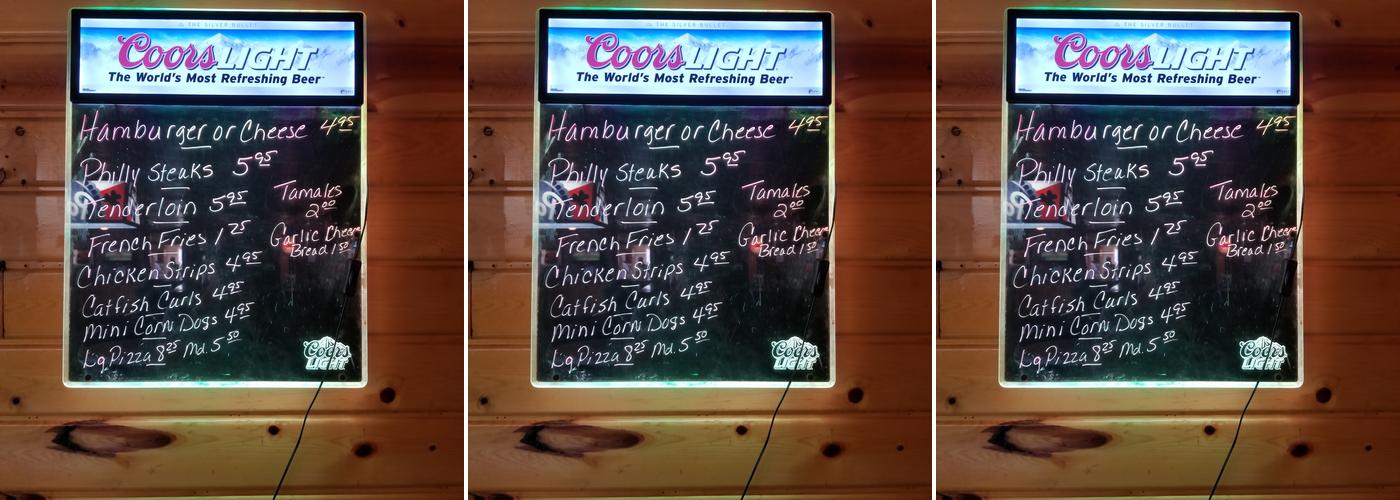 THE SILVER BULLET
Coors LIGHT
The World's Most Refreshing Beer
Hamburger or Cheese 4.95
Philly Steaks 5.95
Tenderloin 5.95
Tamales
2.00
French Fries 1.25
Garlic Cheese
Bread 1.50
Chicken Strips 4.95
Catfish Curls 4.95
Mini Corn Dogs 4.95
Lg Pizza 8.25 Md. 5.50
Coors
LIGHT
THE SILVER BULLET
Coors LIGHT
The World's Most Refreshing Beer
Hamburger or Cheese 4.95
Philly Steaks 5.95
Tenderloin 5.95
Tamales
2.00
French Fries 1.25
Garlic Cheese
Bread 1.50
Chicken Strips 4.95
Catfish Curls 4.95
Mini Corn Dogs 4.95
Lg Pizza 8.25 Md. 5.50
Coors
LIGHT
THE SILVER BULLET
Coors LIGHT
The World's Most Refreshing Beer
Hamburger or Cheese 4.95
Philly Steaks 5.95
Tenderloin 5.95
Tamales
2.00
French Fries 1.25
Garlic Cheese
Bread 1.50
Chicken Strips 4.95
Catfish Curls 4.95
Mini Corn Dogs 4.95
Lg Pizza 8.25 Md. 5.50
Coors
LIGHT